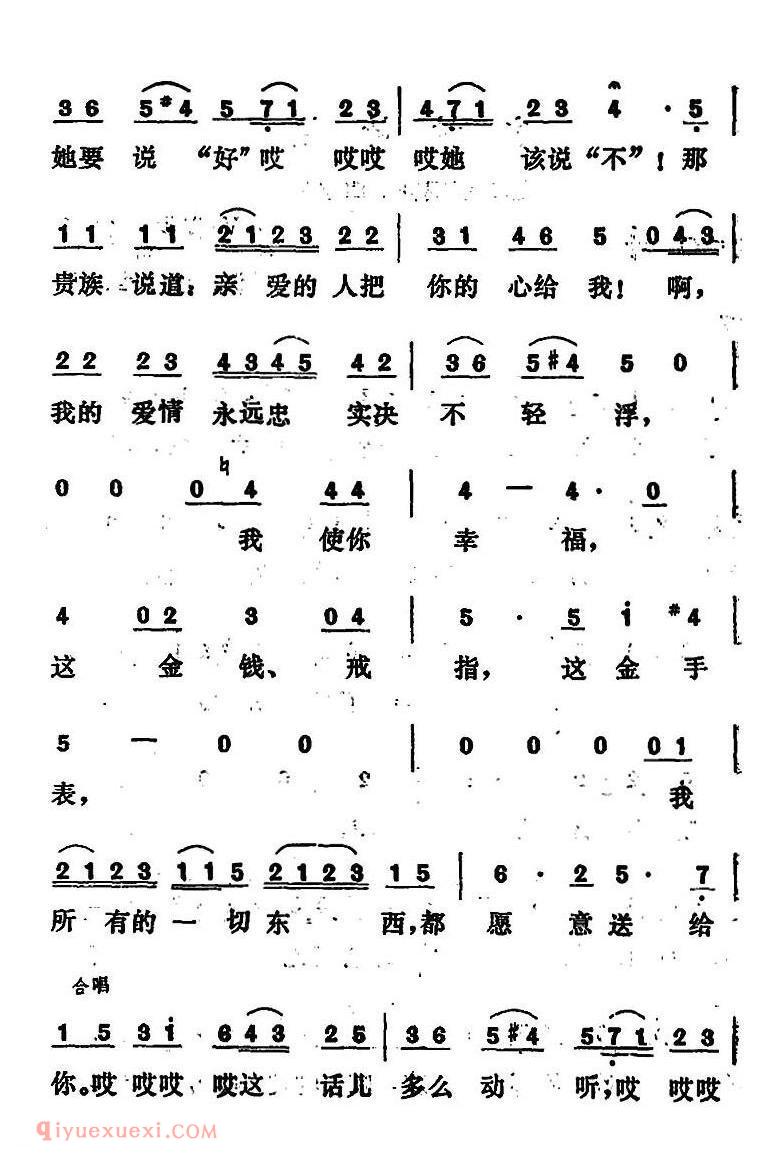 3 6 5 #4 5 7 1 2 3 | 4 7 1 2 3 4 · 5 |
她要 说 “好”哎 哎哎 哎她 该说“不”！那
1 1 1 1 2 1 2 3 2 2 | 3 1 4 6 5 0 4 3 |
贵族 说道：亲 爱的 人把 你的 心给 我！ 啊，
2 2 2 3 4 3 4 5 4 2 | 3 6 5 #4 5 0 |
我的 爱情 永远忠 实决 不 轻 浮，
0 0 0 ♮4 4 4 | 4 — 4 · 0 |
我 使你 幸 福，
4 0 2 3 0 4 | 5 · 5 i #4 |
这 金 钱、 戒 指， 这 金 手
5 — 0 0 | 0 0 0 0 1 |
表， 我
2 1 2 3 1 1 5 2 1 2 3 1 5 | 6 · 2 5 · 7 |
所 有的 一 切 东 西，都 愿 意 送 给
合唱
1 5 3 i 6 4 3 2 5 | 3 6 5 #4 5 7 1 2 3 |
你。哎 哎哎 哎这 话儿 多么 动 听；哎 哎哎
qiyuexuexi.COM